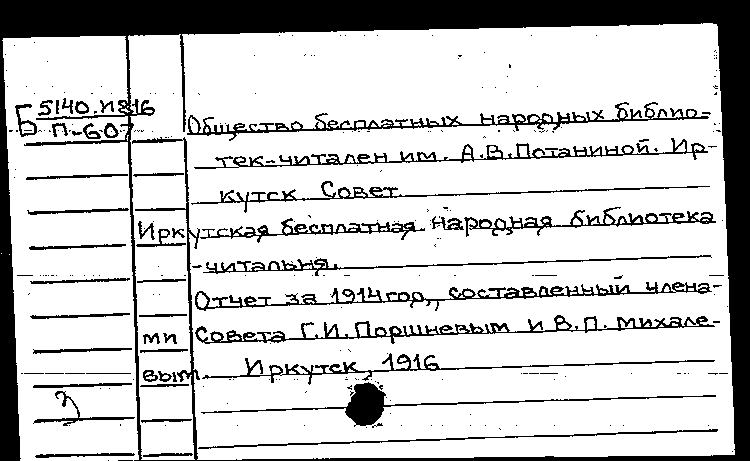 Б 5140.И816
П-607
Общество бесплатных народных библио-
тек-читален им. А.В.Потаниной. Ир-
кутск. Совет.
Иркутская бесплатная народная библиотека
-читальня.
Отчет за 1914год, составленный члена-
ми Совета Г.И.Поршневым и В.П.Михале-
вым. Иркутск, 1916